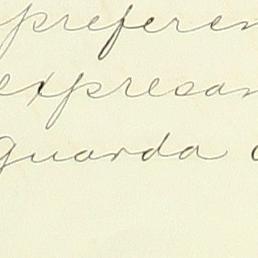 preferen
expresan
guarda